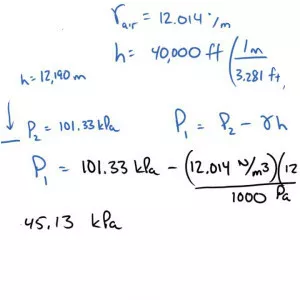 γair = 12.014 °/m
h = 40,000 ft (1m / 3.281 ft,
h = 12,190 m
P2 = 101.33 kPa
P1 = P2 - γh
P1 = 101.33 kPa - (12.014 N/m3)(12
1000 Pa
45.13 kPa